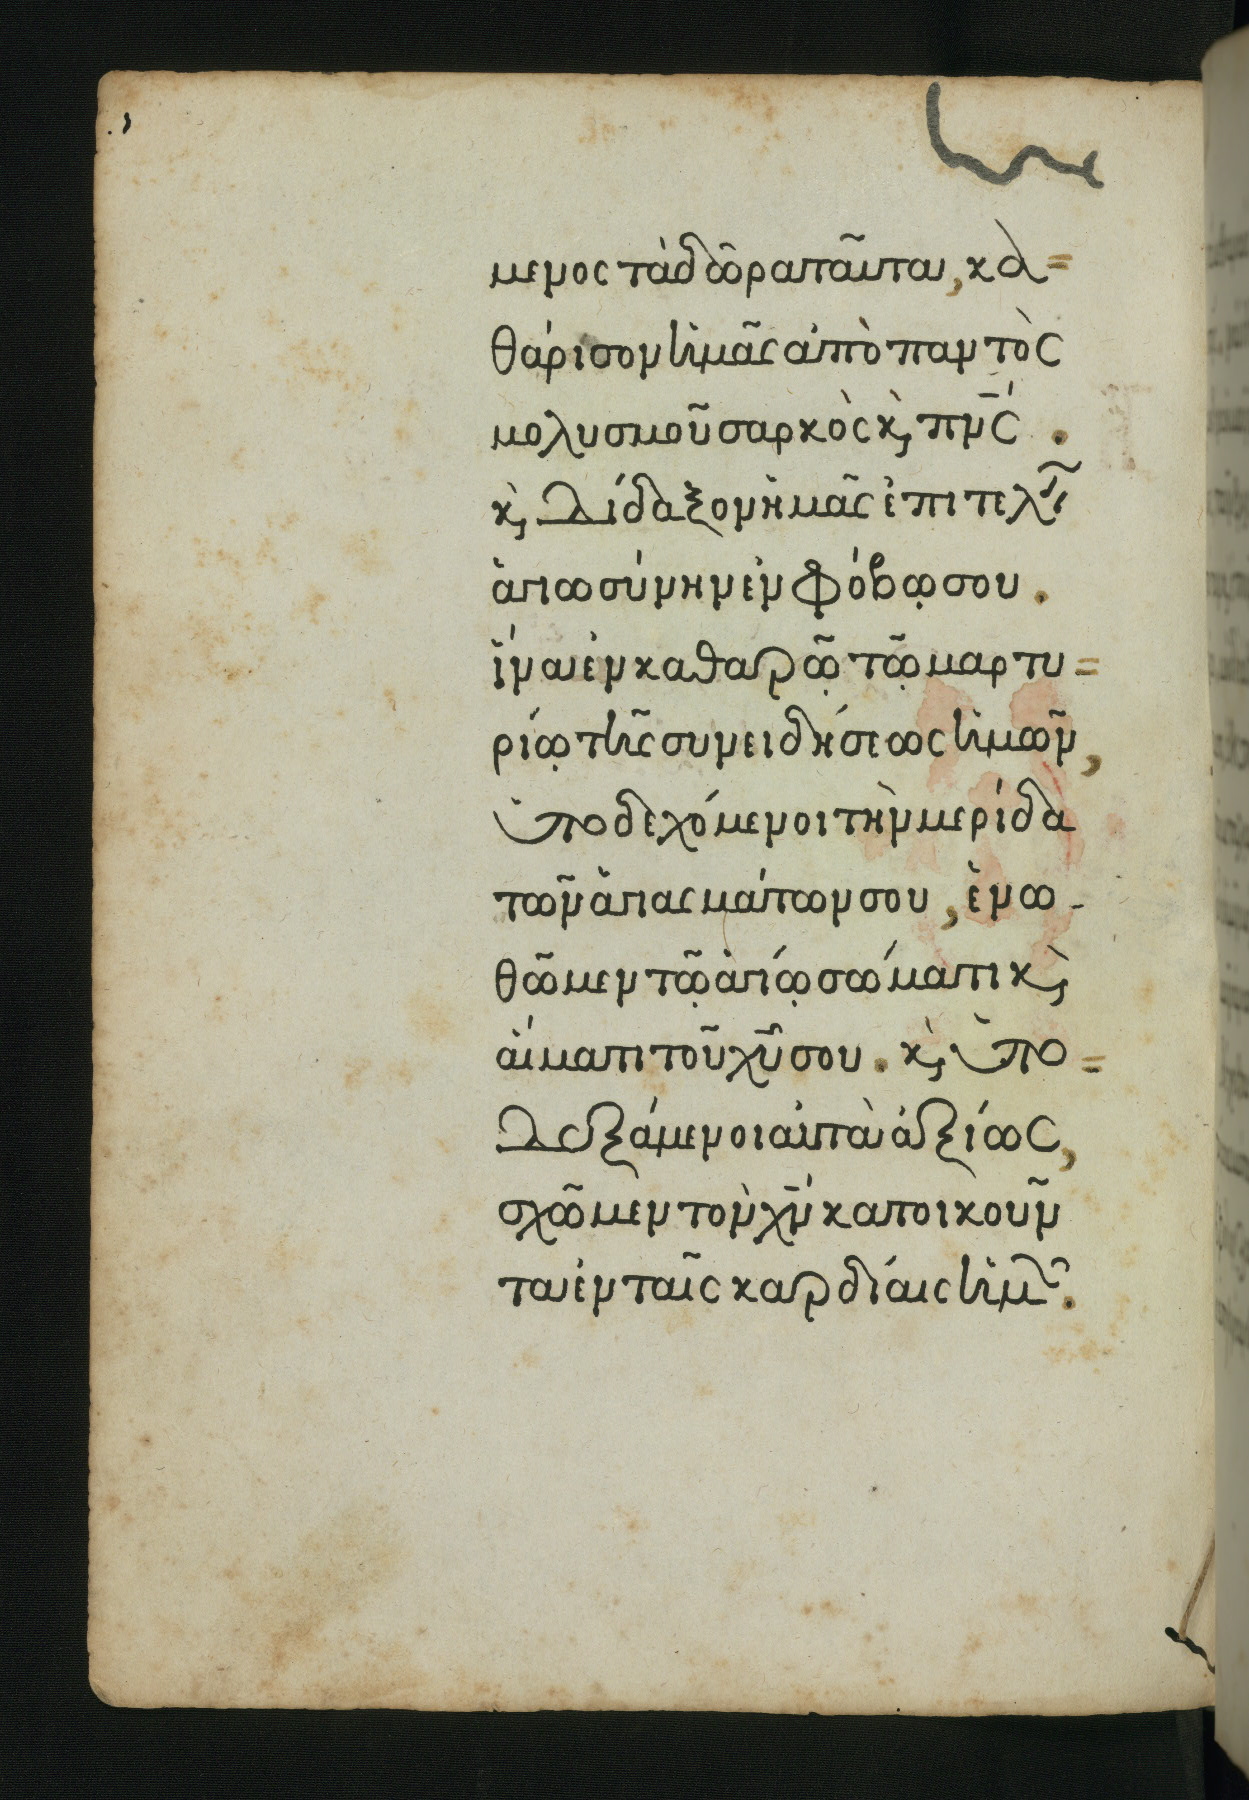 μενος τὰ δῶρα ταῦτα, κα=
θάρισον ἡμᾶς ἀπὸ παντὸς
μολυσμοῦ σαρκὸς κ̀, πν̅ς .
κ̀, δίδαξον ἡμᾶς ἐπιτελεῖν
ἁγιωσύνην ἐν φόβῳ σου .
ἵνα ἐν καθαρῷ τῷ μαρτυ=
ρίῳ τῆς συνειδήσεως ἡμῶν,
ὑποδεχόμενοι τὴν μερίδα
τῶν ἁγιασμάτων σου, ἑνω-
θῶμεν τῷ ἁγίῳ σώματι κ̀,
αἵματι τοῦ χ̅υ σου . κ̀, ὑπο=
δεξάμενοι αὐτὰ ἀξίως,
σχῶμεν τὸν χ̅ν κατοικοῦν
τα ἐν ταῖς καρδίαις ἡμῶν.